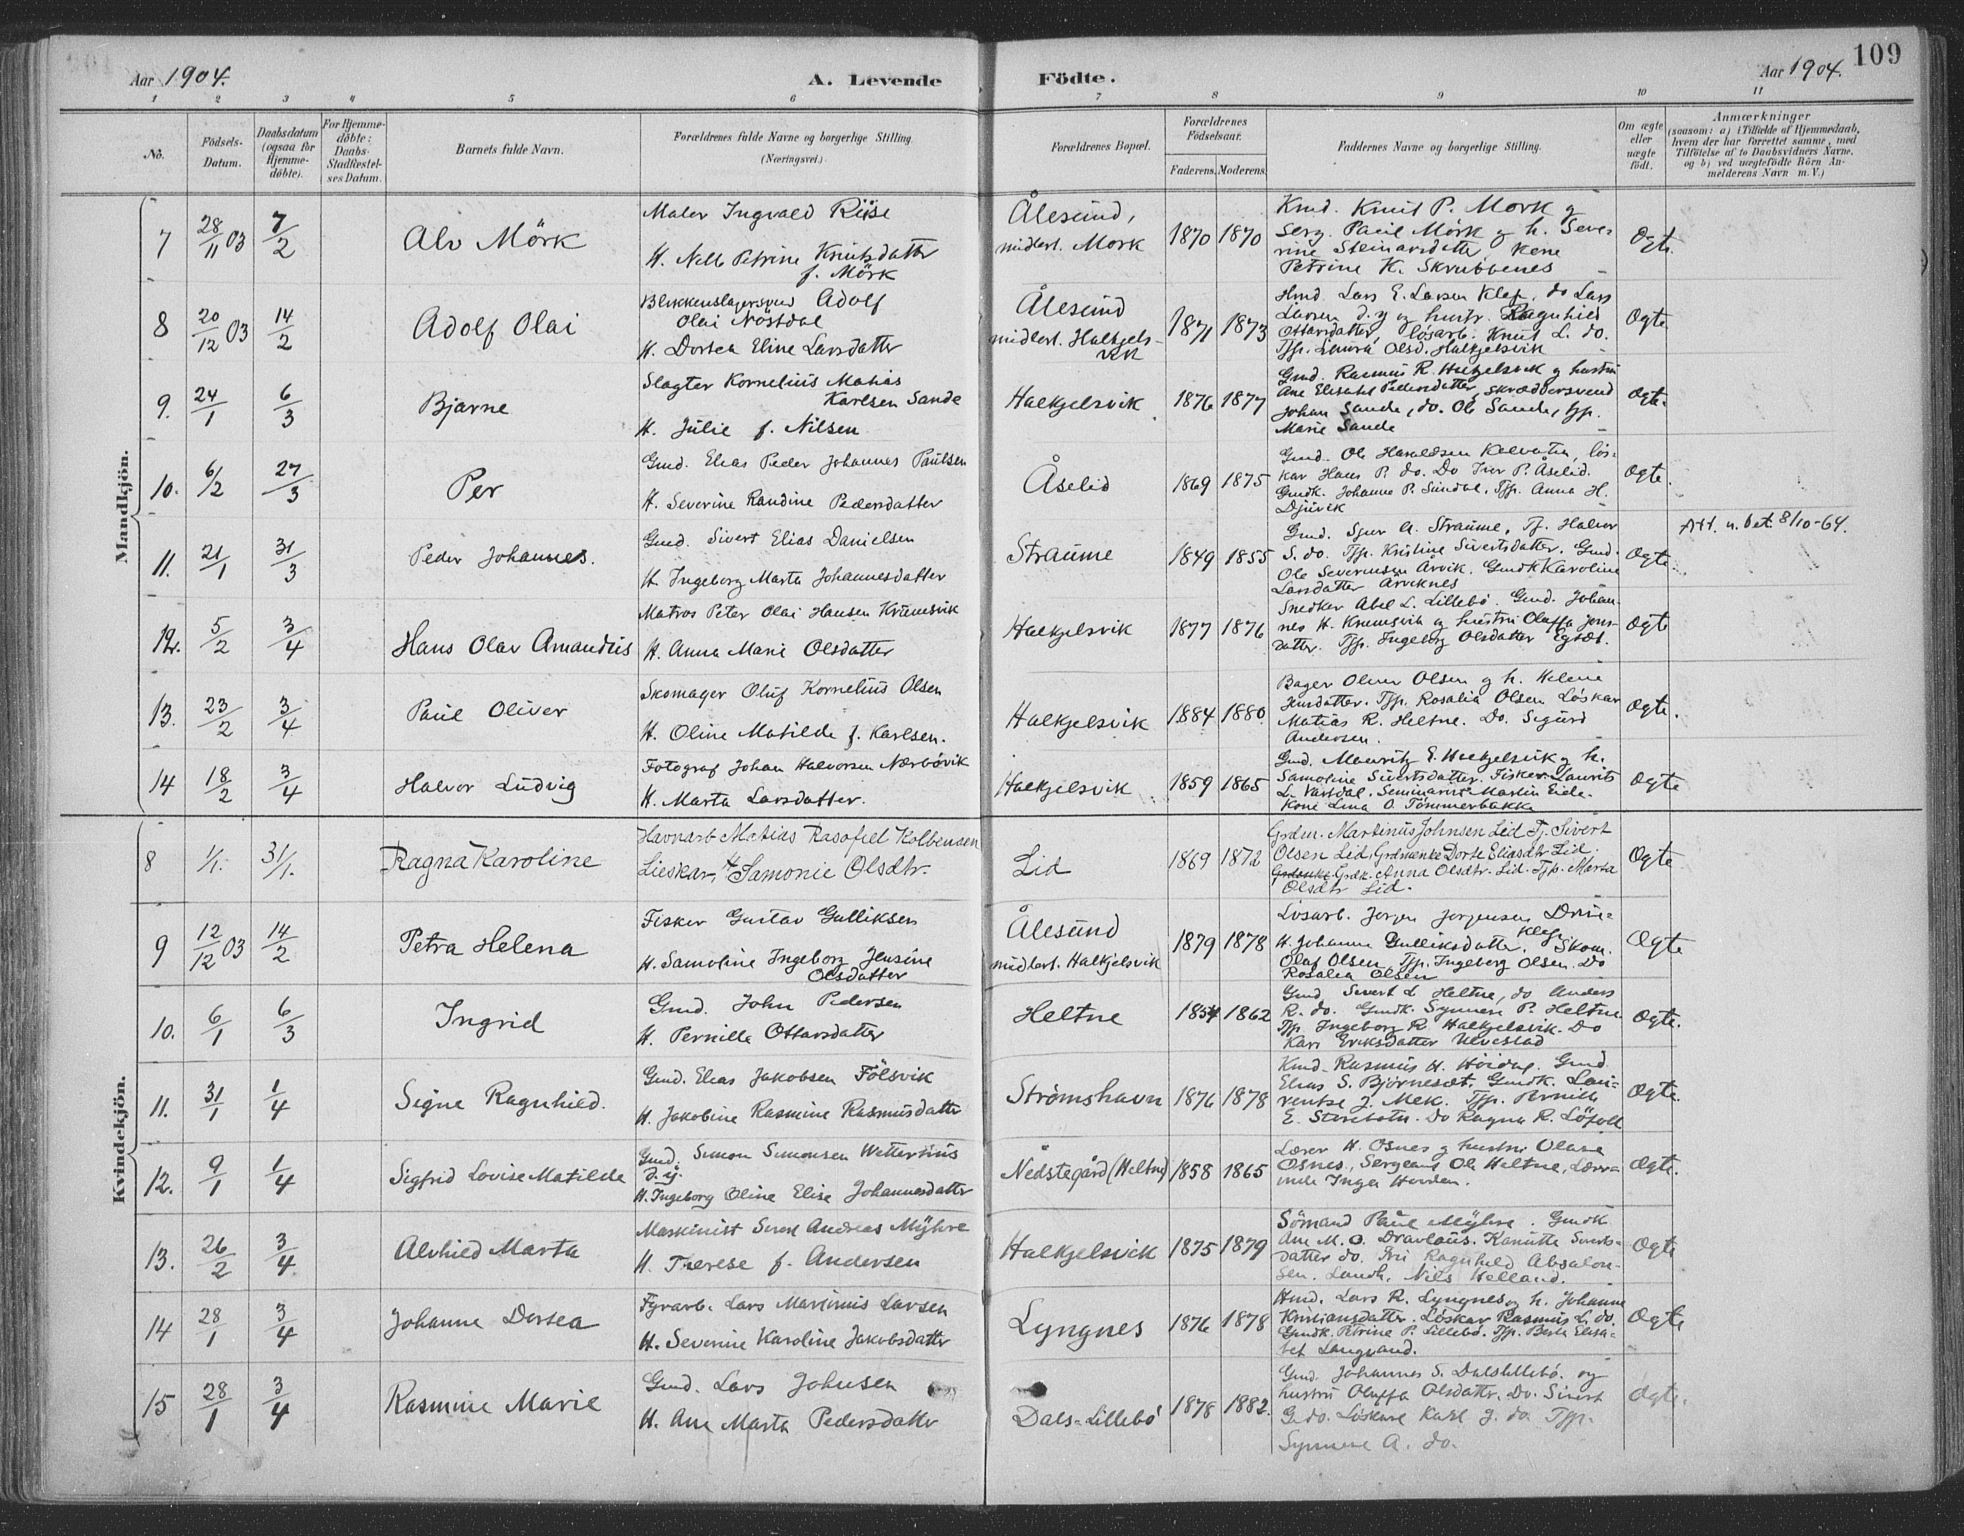 109
Aar 1904.
A. Levende
Födte.
Aar 1904.
1 2 3 4 5 6 7 8 9 10 11
No.
Födsels-Datum.
Daabsdatum (ogsaa for Hjemme-döbte).
For Hjemme-döbte: Daabs-Stadfæstel-ses Datum.
Barnets fulde Navn.
Forældrenes fulde Navne og borgerlige Stilling. (Næringsvei.)
Forældrenes Bopæl.
Forældrenes Födselsaar.
Faderens. Moderens.
Faddernes Navne og borgerlige Stilling.
Om ægte eller uægte födt.
Anmærkninger
(saasom: a) i Tilfælde af Hjemmedaab, hvem der har forrettet samme, med Tilföielse af to Daabsvidners Navne, og b) ved uægtefödte Börn An-melderens Navn m. V.)
Mandkjön.
7 28/11 03 7/2 Alv Mörk
Maler Ingvald Riise
H. Nelle Petrine Knutsdatter
f. Mörk
Ålesund,
midlert. Mork
1870 1870
Kmd. Knut P. Mork g
Serg. Paul Mörk g h. Seve-
rine Steinarsdatter Kone
Petrine K. Skrubbenes
Ogte
8 20/12 03 14/2 Adolf Olai
Blikkenslagersvend Adolf
Olai Nöstdal
H. Dortea Eline Larsdatter
Ålesund
midlert. Halkjels-
vik
1871 1873
Hmd. Lars E. Larsen Klep, do Lars
Larsen d.y og hustr. Ragnhild
Ottarsdatter, lösarb. Knut L. do.
Tjp. Laura Olsd. Halkjelsvik
Ogte
9. 24/1 6/3 Bjarne
Slagter Kornelius Matias
Karlsen Sande
H. Julie f. Nilsen
Halkjelsvik
1876 1877
Gmd. Rasmus R. Halkjelsvik g hustru
Ane Elisabet Pedersdatter, skræddersvend
Johan Sande, do. Ole Sande, tjp.
Marie Sande
Ogte.
10. 6/2 27/3 Per
Gmd. Elias Peder Johannes Paulsen
H. Severine Randine Pedersdatter
Åselid
1869 1875
Gmd. Ole Haraldsen Kalvatn, lös-
kar Hans P. do. Do Iver P. Åselid.
Gmdk. Johanne P. Sundal, Tjp. Anna H.
Djuvik
Ogte.
11. 21/1 31/3 Peder Johannes.
Gmd. Sivert Elias Danielsen
H. Ingeborg Marta Johannesdatter
Straume
1849 1855
Gmd. Sjur A. Straume, Tj. Halvor
S. do. Tjp. Kristine Sivertsdatter. Gmd.
Ole Severinsen Årvik. Gmdk Karoline
Larsdatter Årviknes
Ogte.
Att. u. bet. 8/10-64.
12. 5/2 3/4 Hans Olav Amandus
Matros Peter Olai Hansen Krumsvik
H. Anna Marie Olsdatter
Halkjelsvik
1877 1876
Snedker Abel L. Lillebö. Gmd. Johan-
nes H. Krumsvik og hustru Oluffa Jens-
datter. Tjp. Ingeborg Olsdatter Egset.
Ogte
13. 23/2 3/4 Paul Oliver
Skomager Oluf Kornelius Olsen
H. Oline Matilde f. Karlsen.
Halkjelsvik
1884 1880.
Bager Oluer Olsen g h. Helene
Jensdatter. Tjp. Rosalia Olsen Löskar
Matias R. Heltne. Do. Sigurd
Andersen.
Ogte.
14 18/2 3/4 Halvor Ludvig
Fotograf Johan Halvorsen Nærövik
H. Marta Larsdatter.
Halkjelsvik
1859 1865
Gmd. Mauritz E. Halkjelsvik g h.
Samoline Sivertsdatter. Fisker Laurits
L. Vartdal. Seminarist Martin Eide.
Kone Lina O. Tömmerbakke
Ogte
Kvindekjön.
8 1/1. 31/1. Ragna Karoline
Havnarb Matias Rasafiel Kolbensen
Lieskar, H Samonie Olsdtr.
Lid
1869 1872
Grdm. Martinus Johnsen Lid Tj. Sivert
Olsen Lid, Grdmenke Dorte Eliasdtr Lid.
Grdk. Anna Olsdtr. Lid. Tjp. Marta
Olsdtr Lid.
Ogte
9 12/12 03 14/2 Petra Helena
Fisker Gustav Gulliksen
H. Samoline Ingeborg Jensine
Olsdatter
Ålesund
midlert. Halkjelsvik
1879 1878
Lösarb. Jorgen Jorgensen
H. Johanne Gulliksdatter. Klep. Skom.
Oluf Olsen, Tjp. Ingeborg Olsen. Do
Rosalia Olsen
Ogte
10. 6/1 6/3 Ingrid
Gmd. John Pedersen
H. Pernille Ottarsdatter
Heltne
1854 1862
Gmd Sivert L Heltne, do Anders
R. do. Gmdk. Synnere P. Heltne
Tjp. Ingeborg R. Halkjelsvik. Do
Kari Eriksdatter Ulvestad
Ogte.
11. 31/1 1/4 Signe Ragnhild.
Gmd. Elias Jakobsen Fölsvik
H. Jakobine Rasmine Rasmusdatter
Strömshavn
1876 1878
Kmd. Rasmus H. Höidal. Gmd.
Elias S. Björneset. Gmdk. Lau-
rentse J. Mek. Tjp. Pernille
E. Storebotn. Do Ragna R. Löfoll
Ogte.
12. 9/1 1/4 Sigfrid Lovise Matilde
Gmd. Simon Simonsen Wettertius
H. Ingeborg Oline Elise Johannesdatter
Nedstegård (Heltne)
1858 1865
Lærer H. Osnes g hustru Olave
Osnes, Sergeant Ole Heltne, Lærer-
inde Inga Hovden.
Ogte.
13. 26/2 3/4 Alvhild Marta
Maskinist Sverre Andreas Myhre
H. Therese f. Andersen
Halkjelsvik
1875 1879
Sömand Paul Myhre. Gmdk.
Ane M. O. Dravlaus. Kanutte Siverts-
datter do. Fru Ragnhild Absalon-
sen. Landh. Nils Helland.
Ogte
14 28/1 3/4 Johanne Dortea
Fyrarb. Lars Martinus Larsen
H. Severine Karoline Jakobsdatter
Lyngnes
1876 1878
Hmd. Lars R. Lyngnes og h. Johanne
Kristiansdatter. Löskar Rasmus L. do.
Gmdk. Petrine P. Lillebö. Tjp. Berte Elisa-
bet Langvand.
Ogte
15 28/1 3/4 Rasmine Marie
Gmd. Lars Johnsen
H. Ane Marta Pedersdatter
Dals-Lillebö
1878 1882.
Gmd. Johannes S. Dalslillebö. og
hustru Oluffa Olsdatter. Do. Sivert
G. do. Löskar Karl J. do. Tjp.
Synnere A. do.
Ogte.